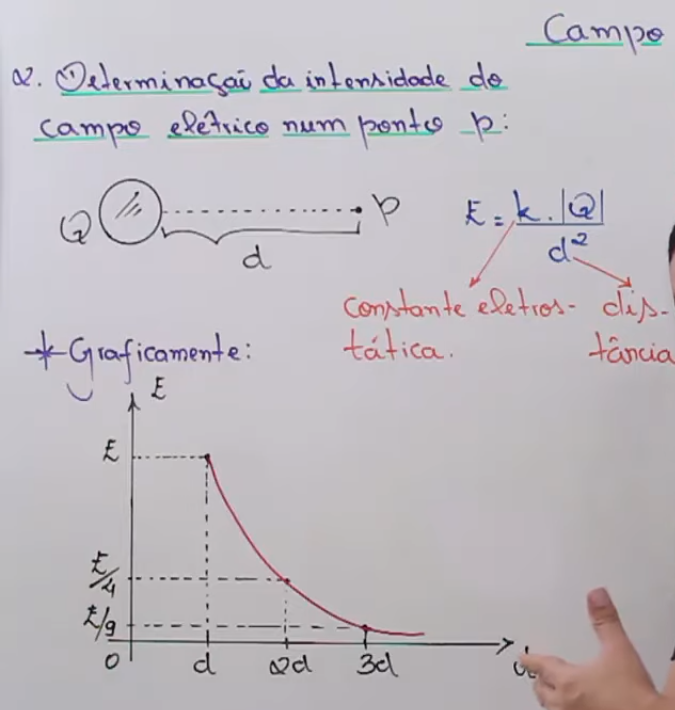 Campo
2. ① Determinaçaõ da intensidade do
campo elétrico num ponto p:
Q
p
d
E = k.|Q|
d²
constante eletros-
tática.
dis-
tância
* Graficamente:
E
E
E/4
E/9
0 d 2d 3d d